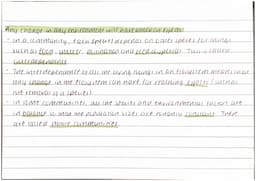 Any change in any environment will have knock on effects
• In a community, each species depends on other species for things
such as food, shelter, pollination and seed dispersal. This is called
interdependence
• The interdependence of all the living things in an ecosystem means that
any change in the ecosystem can have far reaching effects (such as
the removal of a species)
• In stable communities, all the species and environmental factors are
in balance so that the population sizes are roughly constant. These
are called stable communities